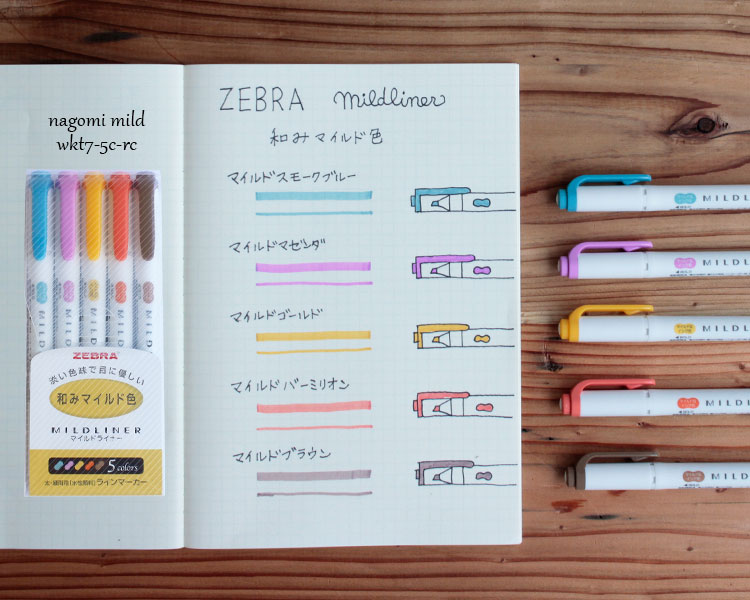 nagomi mild
wkt7-5c-rc
ZEBRA
淡い色味で目に優しい
和みマイルド色
MILDLINER
マイルドライナー
5 colors
ラインマーカー
ZEBRA mildliner
和みマイルド色
マイルドスモークブルー
マイルドマゼンダ
マイルドゴールド
マイルドバーミリオン
マイルドブラウン
MILDL
MILDL
MILDL
MILDL
MILD